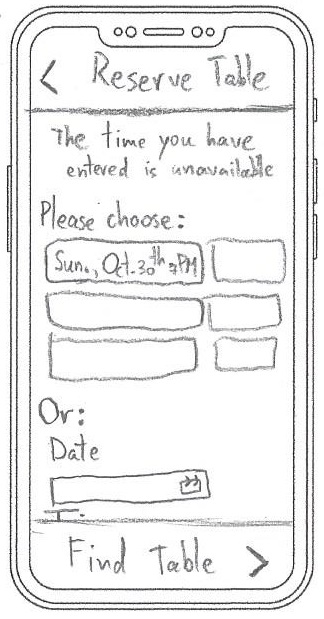 < Reserve Table
The time you have
entered is unavailable
Please choose:
Sun., Oct. 30th 7PM
Or:
Date
Find Table >